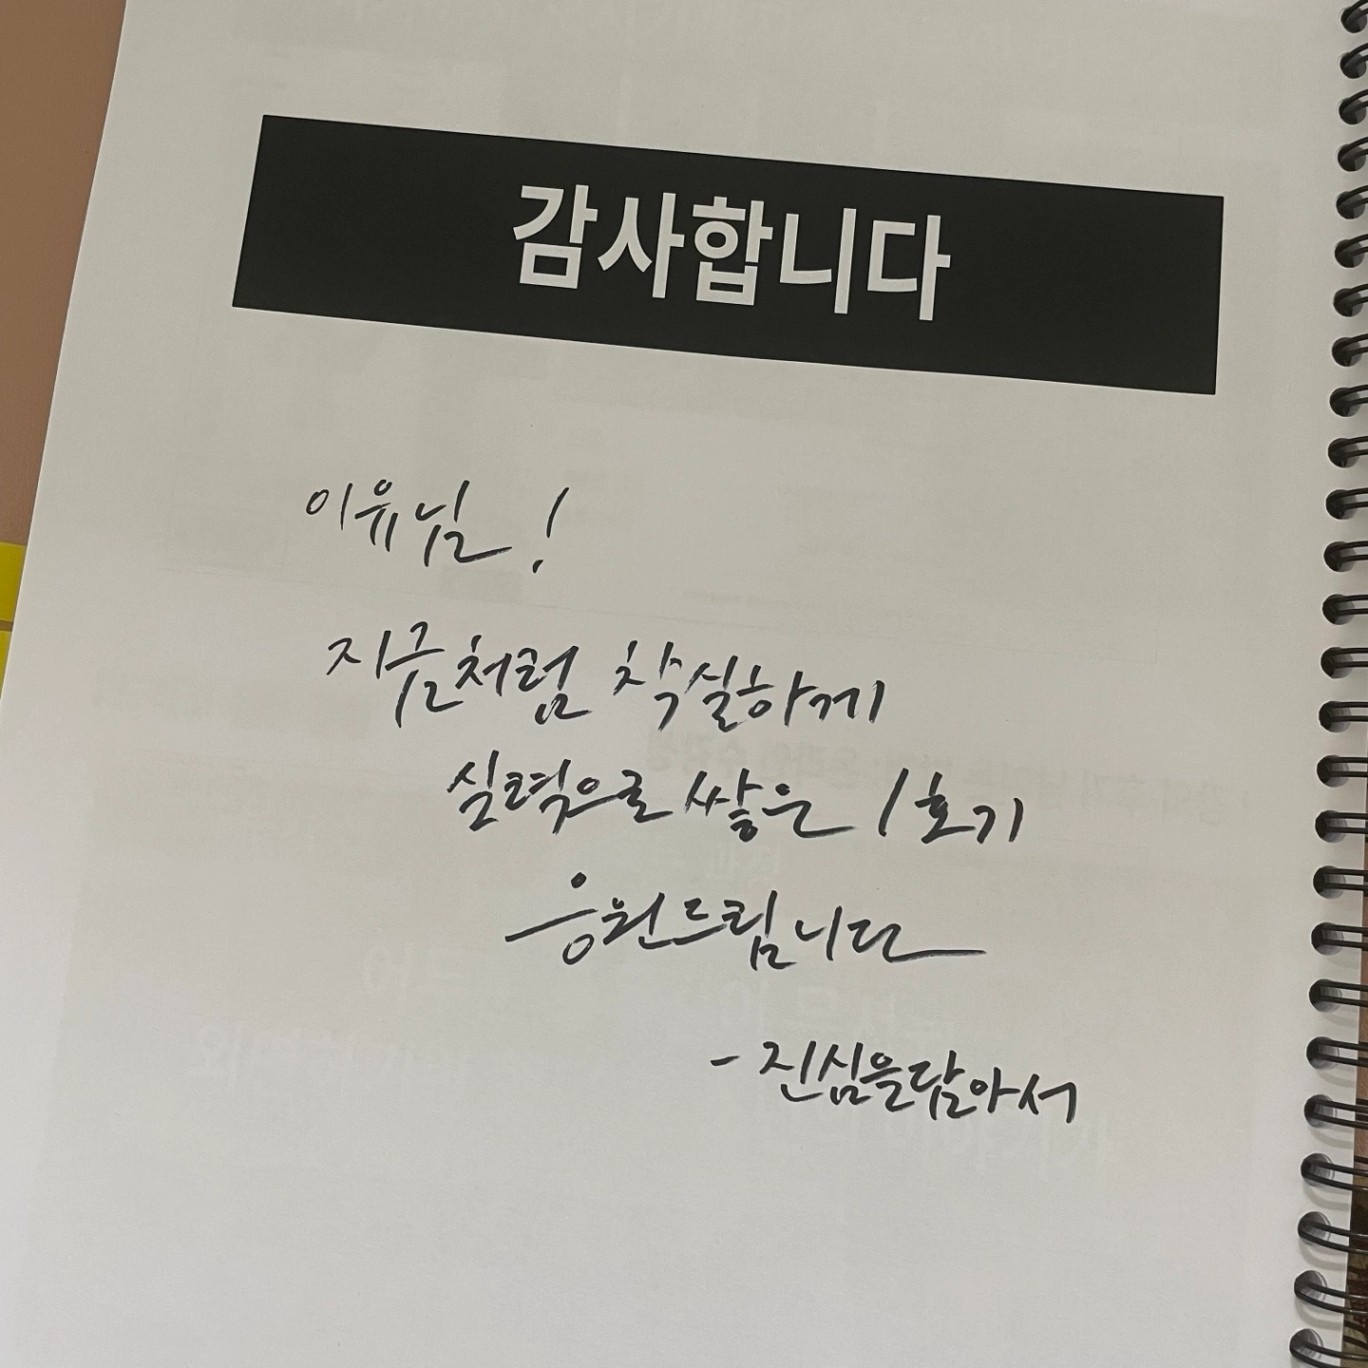 감사합니다
이유님!
지금처럼 착실하게
실력으로 쌓은 1호기
응원드립니다
- 진심을담아서